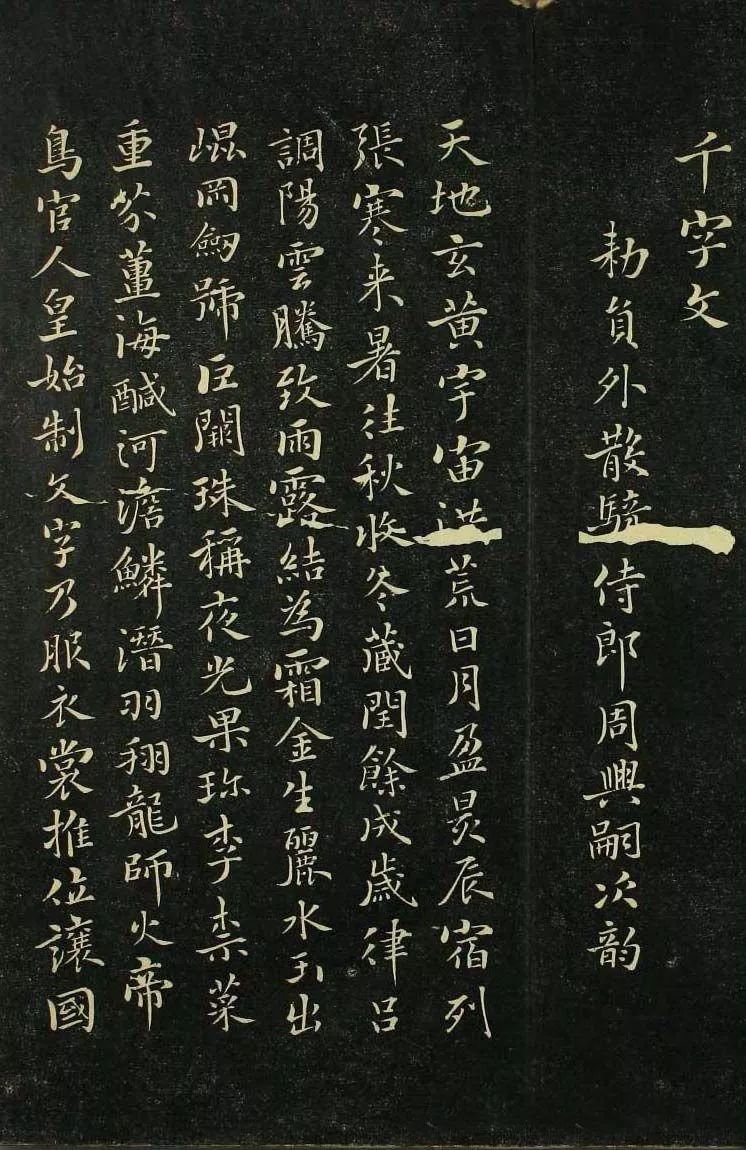 千字文
勑貟外散騎侍郎周興嗣次韵
天地玄黄宇宙洪荒日月盈昃辰宿列
張寒来暑往秋收冬藏閏餘成歲律吕
調陽雲騰致雨露結為霜金生麗水玉出
崐岡劒號巨闕珠稱夜光果珎李柰菜
重芥薑海醎河澹鱗潛羽翔龍師火帝
鳥官人皇始制文字乃服衣裳推位讓國